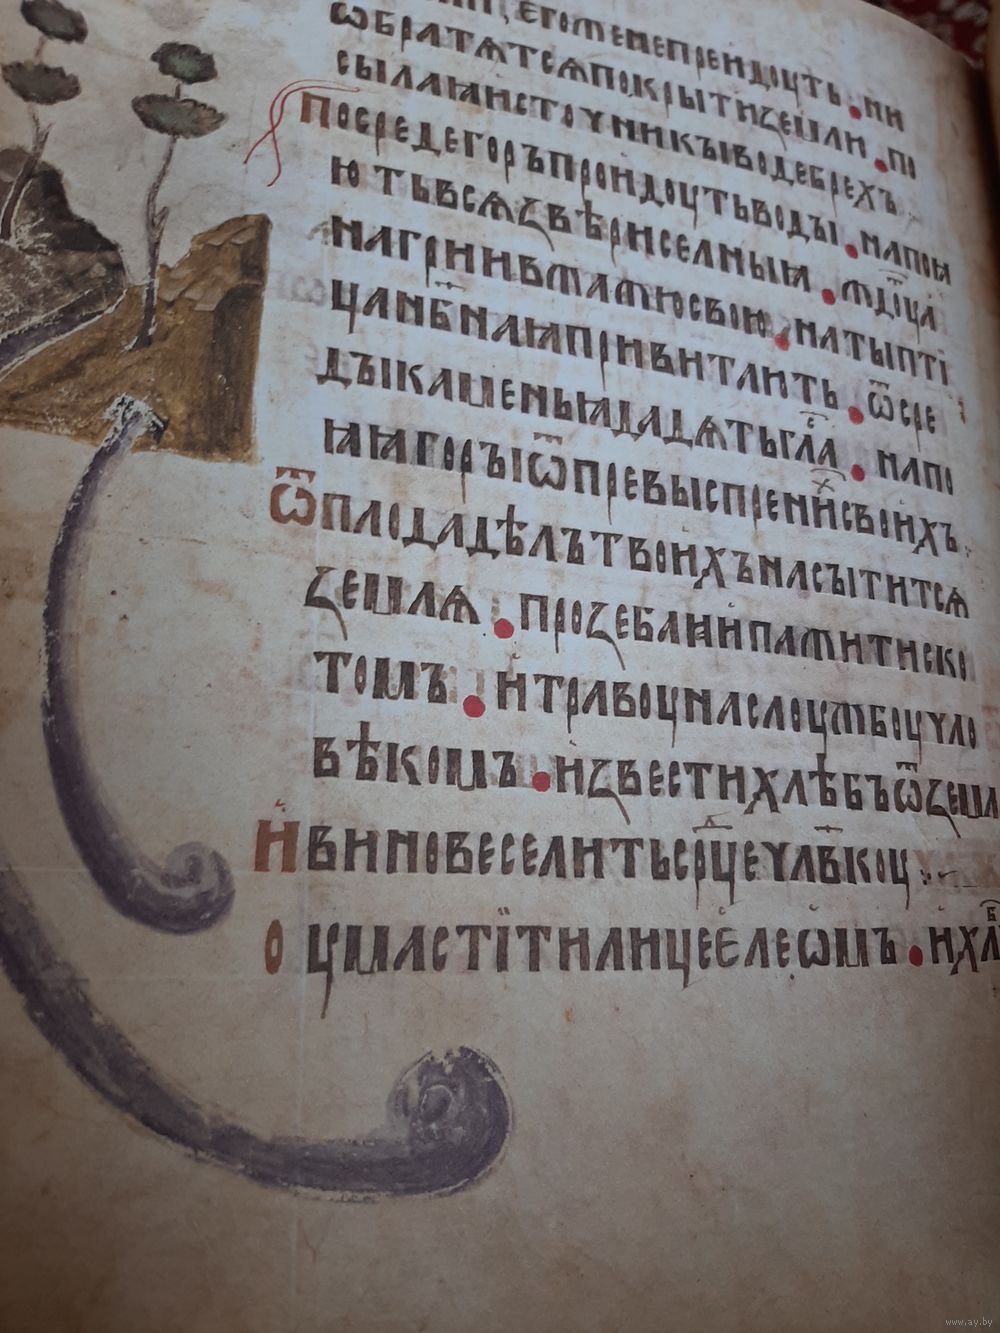 егоженепреидоуть. ни
ѡбратѧтсѧпокрытиземли. по
сылаꙗистоуникъıводебрехъ.
Посредегоръпроидоутьводы. напои
ютьвсѧзвѣриселныꙗ. ждꙋца
нагриивъжажюсвою. натыптї
цан҃бнаꙗпривитаить. ѿсре
дъıкаменьꙗдадѧтьгла. напо
ꙗꙗгоръıѿпревыспренисвоихъ.
Ѿплодадѣлътвоихънасытитсѧ
землѧ. прозебаꙗипажитиско
томъ. итравоунаслоужбоучло
вѣкомъ. известихлѣбъѿземлѧ
Ивиновеселитьсрцечлвкоу
оумастїтилицеелеѡмъ. ихл
www.ay.by